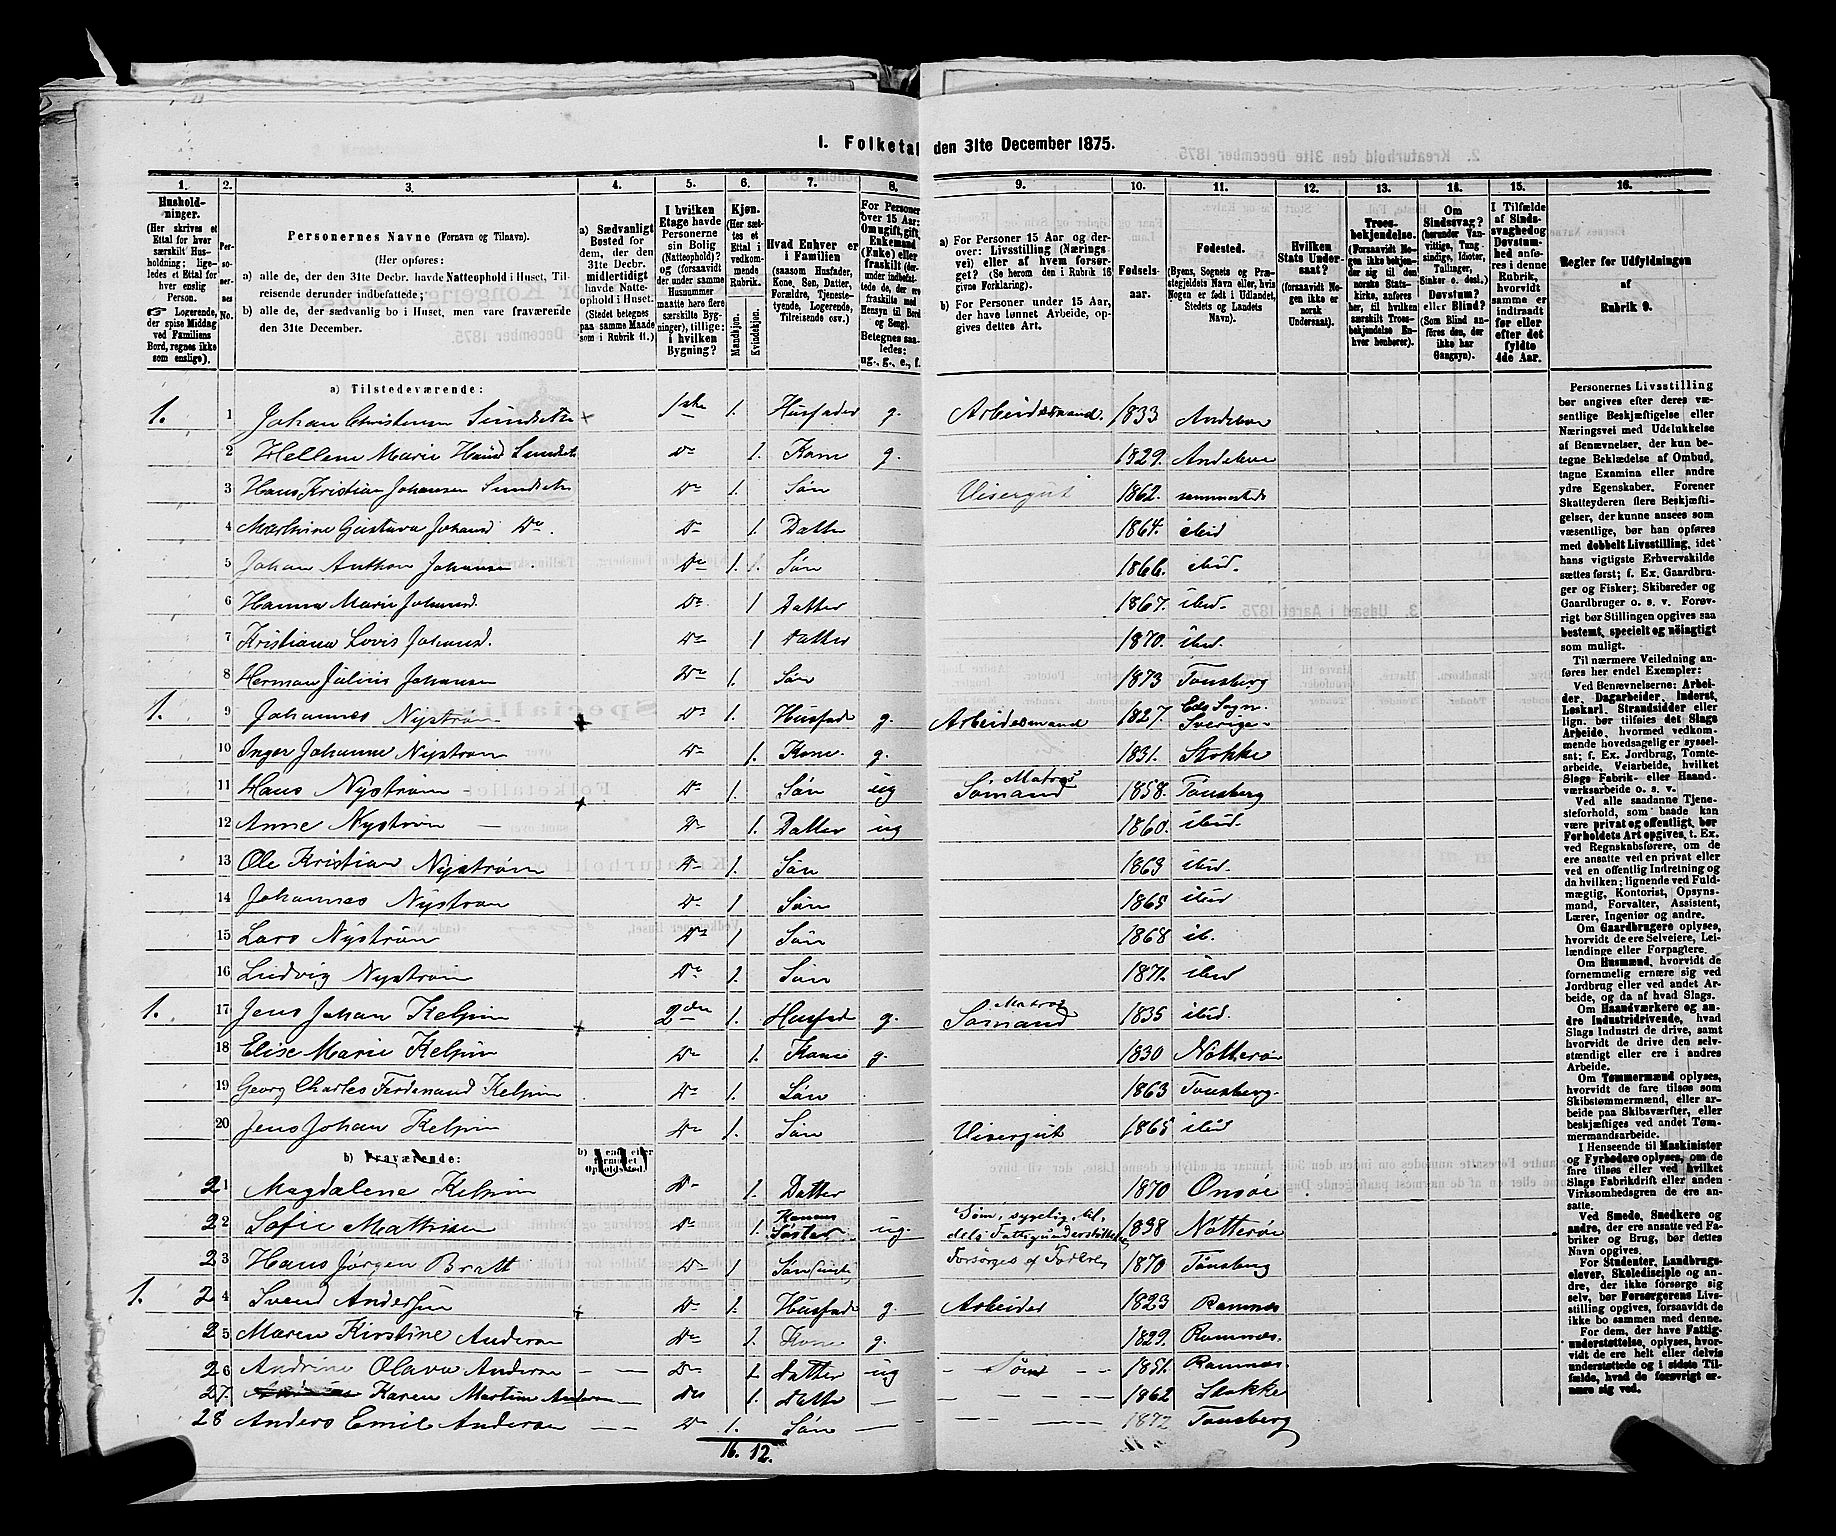 1. Folketal den 31te December 1875.
1. 2. 3. 4. 5. 6. 7. 8. 9. 10. 11. 12. 13. 14. 15. 16.
Hushold-
ninger.
(Her skrives et
Ettal for hver
særskilt Hus-
holdning; lige-
ledes et Ettal for
hver enslig
Person.
Logerende,
der spise Middag
ved Familiens
Bord, regnes ikke
som enslige).
Per-
so-
ner-
nes
No.
Personernes Navne (Fornavn og Tilnavn).
(Her opføres:
a) alle de, der den 31te Decbr. havde Natteophold i Huset, Til-
reisende derunder indbefattede;
b) alle de, der sædvanlig bo i Huset, men vare fraværende
den 31te December.
a) Sædvanligt
Bosted for
dem, der den
31te Decbr.
midlertidigt
havde Natte-
ophold i Huset.
(Stedet betegnes
paa samme Maade
som i Rubrik 11.)
I hvilken
Etage havde
Personerne
sin Bolig
(Natteophold)?
og (forsaavidt
under samme
Husnummer
maatte høre flere
særskilte Byg-
ninger), tillige:
i hvilken
Bygning?
Kjøn.
(Her sæt-
tes et
Ettal i
vedkom-
mende
Rubrik.
Mandkjøn.
Kvindekjøn.
Hvad Enhver er
i Familien
(saasom Husfader,
Kone, Søn, Datter,
Forældre, Tjeneste-
tyende, Logerende,
Tilreisende osv.)
For Personer
over 15 Aar:
Om ugift, gift,
Enkemand
(Enke) eller
fraskilt
Betegnes saa-
ledes:
ug., g., e., f.
a) For Personer 15 Aar og der-
over: Livsstilling (Nærings-
vei) eller af hvem forsør-
get? (Se herom den i Rubrik 16
givne Forklaring).
b) For Personer under 15 Aar,
der have lønnet Arbeide, op-
gives dettes Art.
Fødsels-
aar.
Fødested.
(Byens, Sognets og Præ-
stegjeldets Navn eller, hvis
Nogen er født i Udlandet,
Stedets og Landets
Navn).
Hvilken
Stats Under-
saat?
(forsaavidt No-
gen ikke er
norsk
Undersaat).
Troes-
bekjendelse.
(Forsaavidt No-
gen ikke bekjen-
der sig til den
norske Stats-
kirke, anføres
her, til hvilken
særskilt Troes-
bekjendelse En-
hver henhører).
Om
Sindssvag?
(herunder Van-
vittige, Tung-
sindige, Idioter,
Tullinger,
Sinker o. desl.)
Døvstum?
eller Blind?
(Som Blind an-
føres den, der
ikke har
Gangsyn).
I Tilfælde
af Sinds-
svaghed og
Døvstum-
hed anfø-
res i denne
Rubrik,
hvorvidt
samme er
indtraadt
før eller
efter det
fyldte
4de Aar.
Regler for Udfyldningen
af
Rubrik 9.
a) Tilstedeværende:
1. 1 Johan Christensen 1ste 1. Husfader g. Arbeidsmand. 1833 Andeboe
2 Hellene Marie Do 1. Kone g. 1829. Andeboe
3 Hans Kristian Johansen Do 1. Søn Visergut 1862. sammesteds
4 Gustava Johansd Do. Do 1. Datter 1864. ibid
5 Johan Anthon Johansen Do 1. Søn 1866. ibid.
6 Hanna Marie Johansd. Do. 1 Datter 1867. ibid.
7 Kristiana Lovis Johansd. Do 1 Datter 1870. ibid.
8 Herman Julius Johansen Do 1. Søn 1873 Tønsberg
1. 9 Johannes Nystrøm Do 1. Husfader g. Arbeidsmand 1827. Eds Sogn. Sverige
10 Inger Johanne Nystrøm Do 1. Kone. g. 1831. Stokke
11 Hans Nystrøm Do 1. Søn ug Matros Sømand 1858. Tønsberg
12 Anne Nystrøm Do 1. Datter ug 1860. ibid.
13 Ole Kristian Nystrøm Do 1. Søn 1863 ibid.
14 Johannes Nystrøm Do 1 Søn 1865 ibid
15 Lars Nystrøm Do 1 Søn 1868 ib.
16 Ludvig Nystrøm Do 1. Søn 1871. ibid
1. 17 Jens Johan Kelpin 2den 1. Husfader g. Matros Sømand 1835 ibid.
18 Elise Marie Kelpin Do 1. Kone g. 1830 Nøtterø
19 Georg Charles Ferdenand Kelpin Do 1. Søn 1863 Tønsberg.
20 Jens Johan Kelpin Do 1. Søn Visergut 1865 ibid
b) Fraværende:
21 Magdalene Kelpin Do 1. Datter 1870 Onsøe
22 Sofie Mathisen Do 1. Konens Søster ug. Søm, sygelig, til dels Fattigunderstøttelse 1838 Nøtterø
23 Hans Jørgen Bratt Do 1. Søn Forsørges af Fædrene 1870 Tønsberg
1. 24 Svend Andersen Do 1. Husfader g. Arbeider 1823 Ramnæs
25 Maren Kirstine Andersen Do 1. Kone g. 1829. Ramnæs.
26 Andrine Olava Andersen Do 1 Datter ug Søm 1851. Ramnæs.
27. Karen Martine Andersen Do 1. Datter 1862 Stokke
28 Anders Emil Andersen Do 1. Søn 1872 Tønsberg
16. 12.
Personernes Livsstilling
bør angives efter deres væ-
sentlige Beskjæftigelse eller
Næringsvei med Udelukkelse
af Benævnelser, der kun be-
tegne Beklædelse af Ombud,
tagne Examina eller andre
ydre Egenskaber. Forener
Skatteyderen flere Beskjæfti-
gelser, der kunne ansees som
væsentlige, bør han opføres
med dobbelt Livsstilling, idet
hans vigtigste Erhvervskilde
sættes først; f. Ex. Gaardbru-
ger og Fisker; Skibsreder og
Gaardbruger o. s. v. Forøv-
rigt bør Stillingen opgives saa
bestemt, specielt og nøiagtigt
som muligt.
Til nærmere Veiledning an-
føres her endel Exempler:
Ved Benævnelserne: Arbei-
der, Dagarbeider, Inderst,
Løskarl, Strandsidder eller
lign. bør tilføies det Slags
Arbeide, hvormed vedkom-
mende hovedsagelig er syssel-
sat; f. Ex. Jordbrug, Tomte-
arbeide, Veiarbeide, hvilket
Slags Fabrik- eller Haand-
værksarbeide o. s. v.
Ved alle saadanne Tjene-
steforhold, som baade kan
være privat og offentligt, bør
Forholdets Art opgives, t. Ex.
ved Regnskabsførere, om de
ere ansatte ved en privat eller
ved en offentlig Indretning og
da hvilken; lignende ved Fuld-
mægtig, Kontorist, Opsyns-
mand, Forvalter, Assistent,
Lærer, Ingeniør og andre.
Om Gaardbrugere oplyses,
hvorvidt de ere Selveiere, Lei-
lændinge eller Forpagtere.
Om Husmænd, hvorvidt de
fornemmelig ernære sig ved
Jordbrug eller ved andet Ar-
beide, og da af hvad Slags.
Om Haandværkere og an-
dre Industridrivende, hvad
Slags Industri de drive, samt
hvorvidt de drive den selv-
stændigt eller ere i andres
Arbeide.
Om Tømmermænd oplyses,
hvorvidt de fare tilsøs som
Skibstømmermænd, eller ar-
beide paa Skibsværfter, eller
beskjæftiges ved andet Tøm-
mermandsarbeide.
I Henseende til Maskinister
og Fyrbødere oplyses, om de
fare tilsøs eller ved hvilket
Slags Fabrikdrift eller anden
Virksomhedsgren de ere an-
satte.
Ved Smede, Snedkere og
andre, der ere ansatte ved Fa-
briker og Brug, bør dettes
Navn opgives.
For Studenter, Landbrugs-
elever, Skoledisciple og an-
dre, der ikke forsørge sig
selv, bør Forsørgerens Livs-
stilling opgives, forsaavidt de
ikke bo sammen med denne.
For dem, der have Fattig-
understøttelse, oplyses, hvor-
vidt de ere helt eller delvis
understøttede og i sidste Til-
fælde, hvad de forøvrigt er-
nære sig ved.